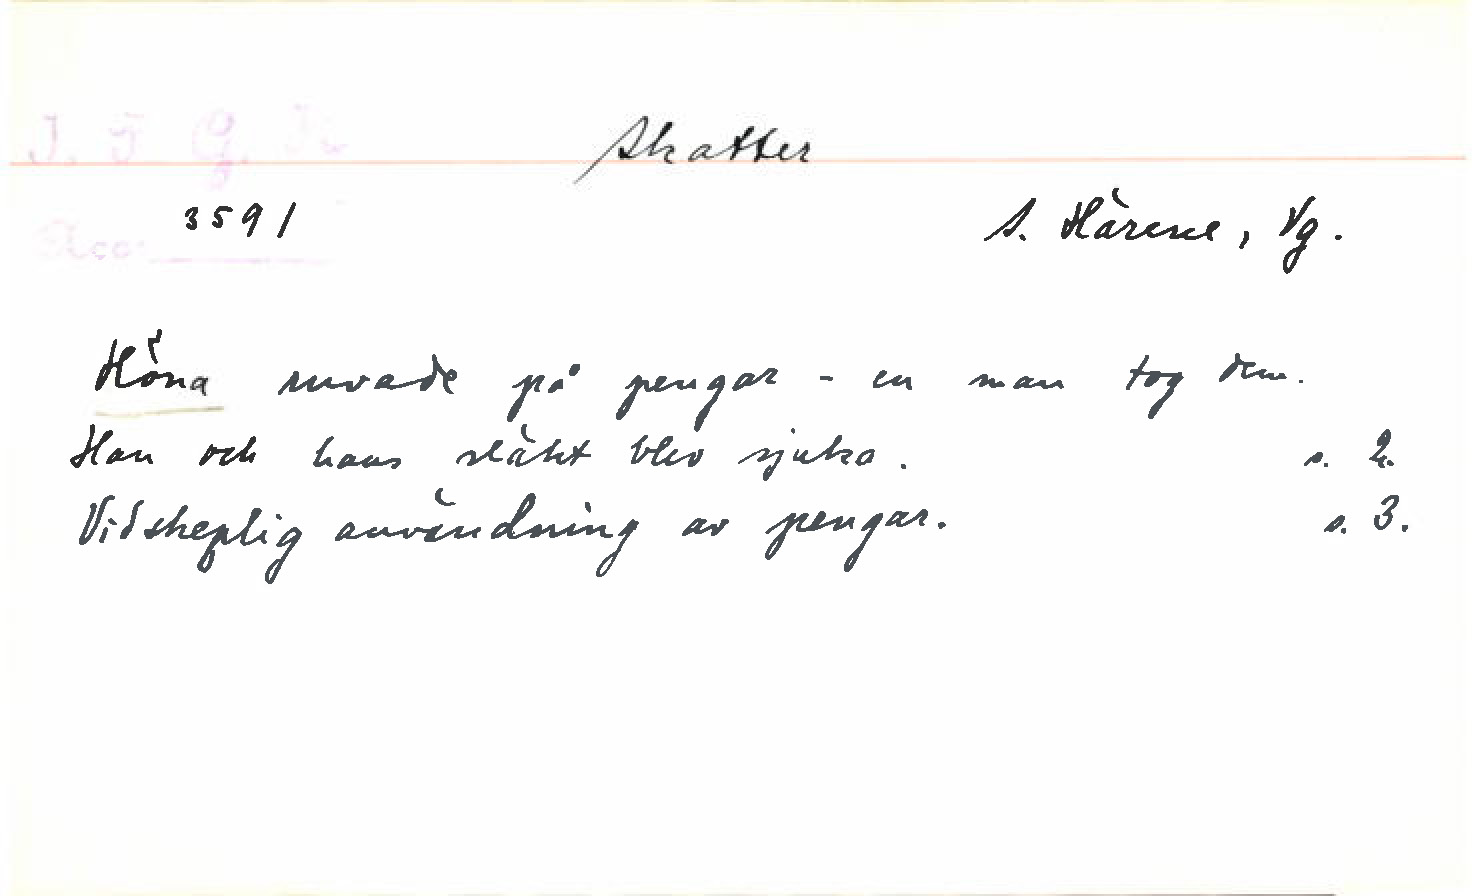 I. F. G. H.
Skatter
3591
S. Härene, Vg.
Acc:
Höna ruvade på pengar - en man tog dem.
Han och hans släkt blev sjuka. s. 2.
Vidskeplig användning av pengar. s. 3.